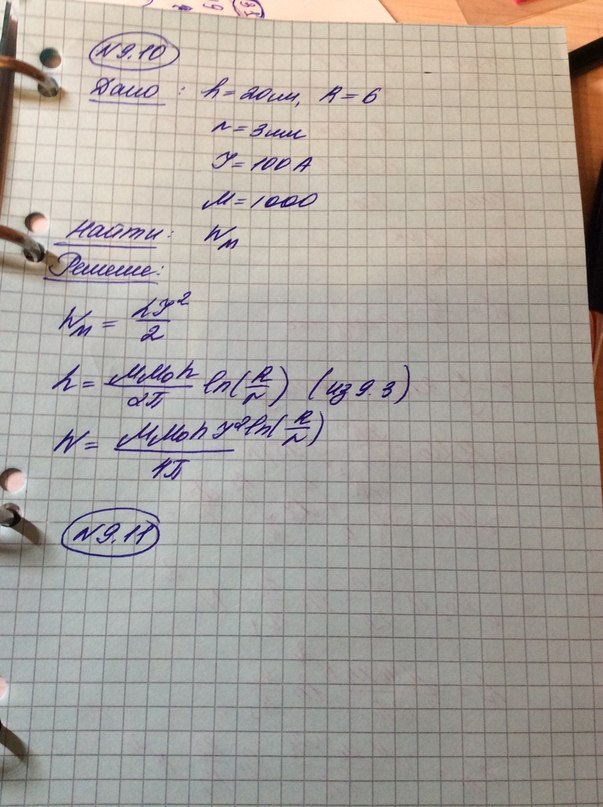 N 9.10
Дано: h=20см, R=6
r=3мм
I=100А
М=1000
Найти: Wm
Решение:
Wm = LI²/2
L= ММ₀h/2π ln(R/r) (из 9.3)
W= ММ₀hI²ln(R/r)/4π
N 9.11